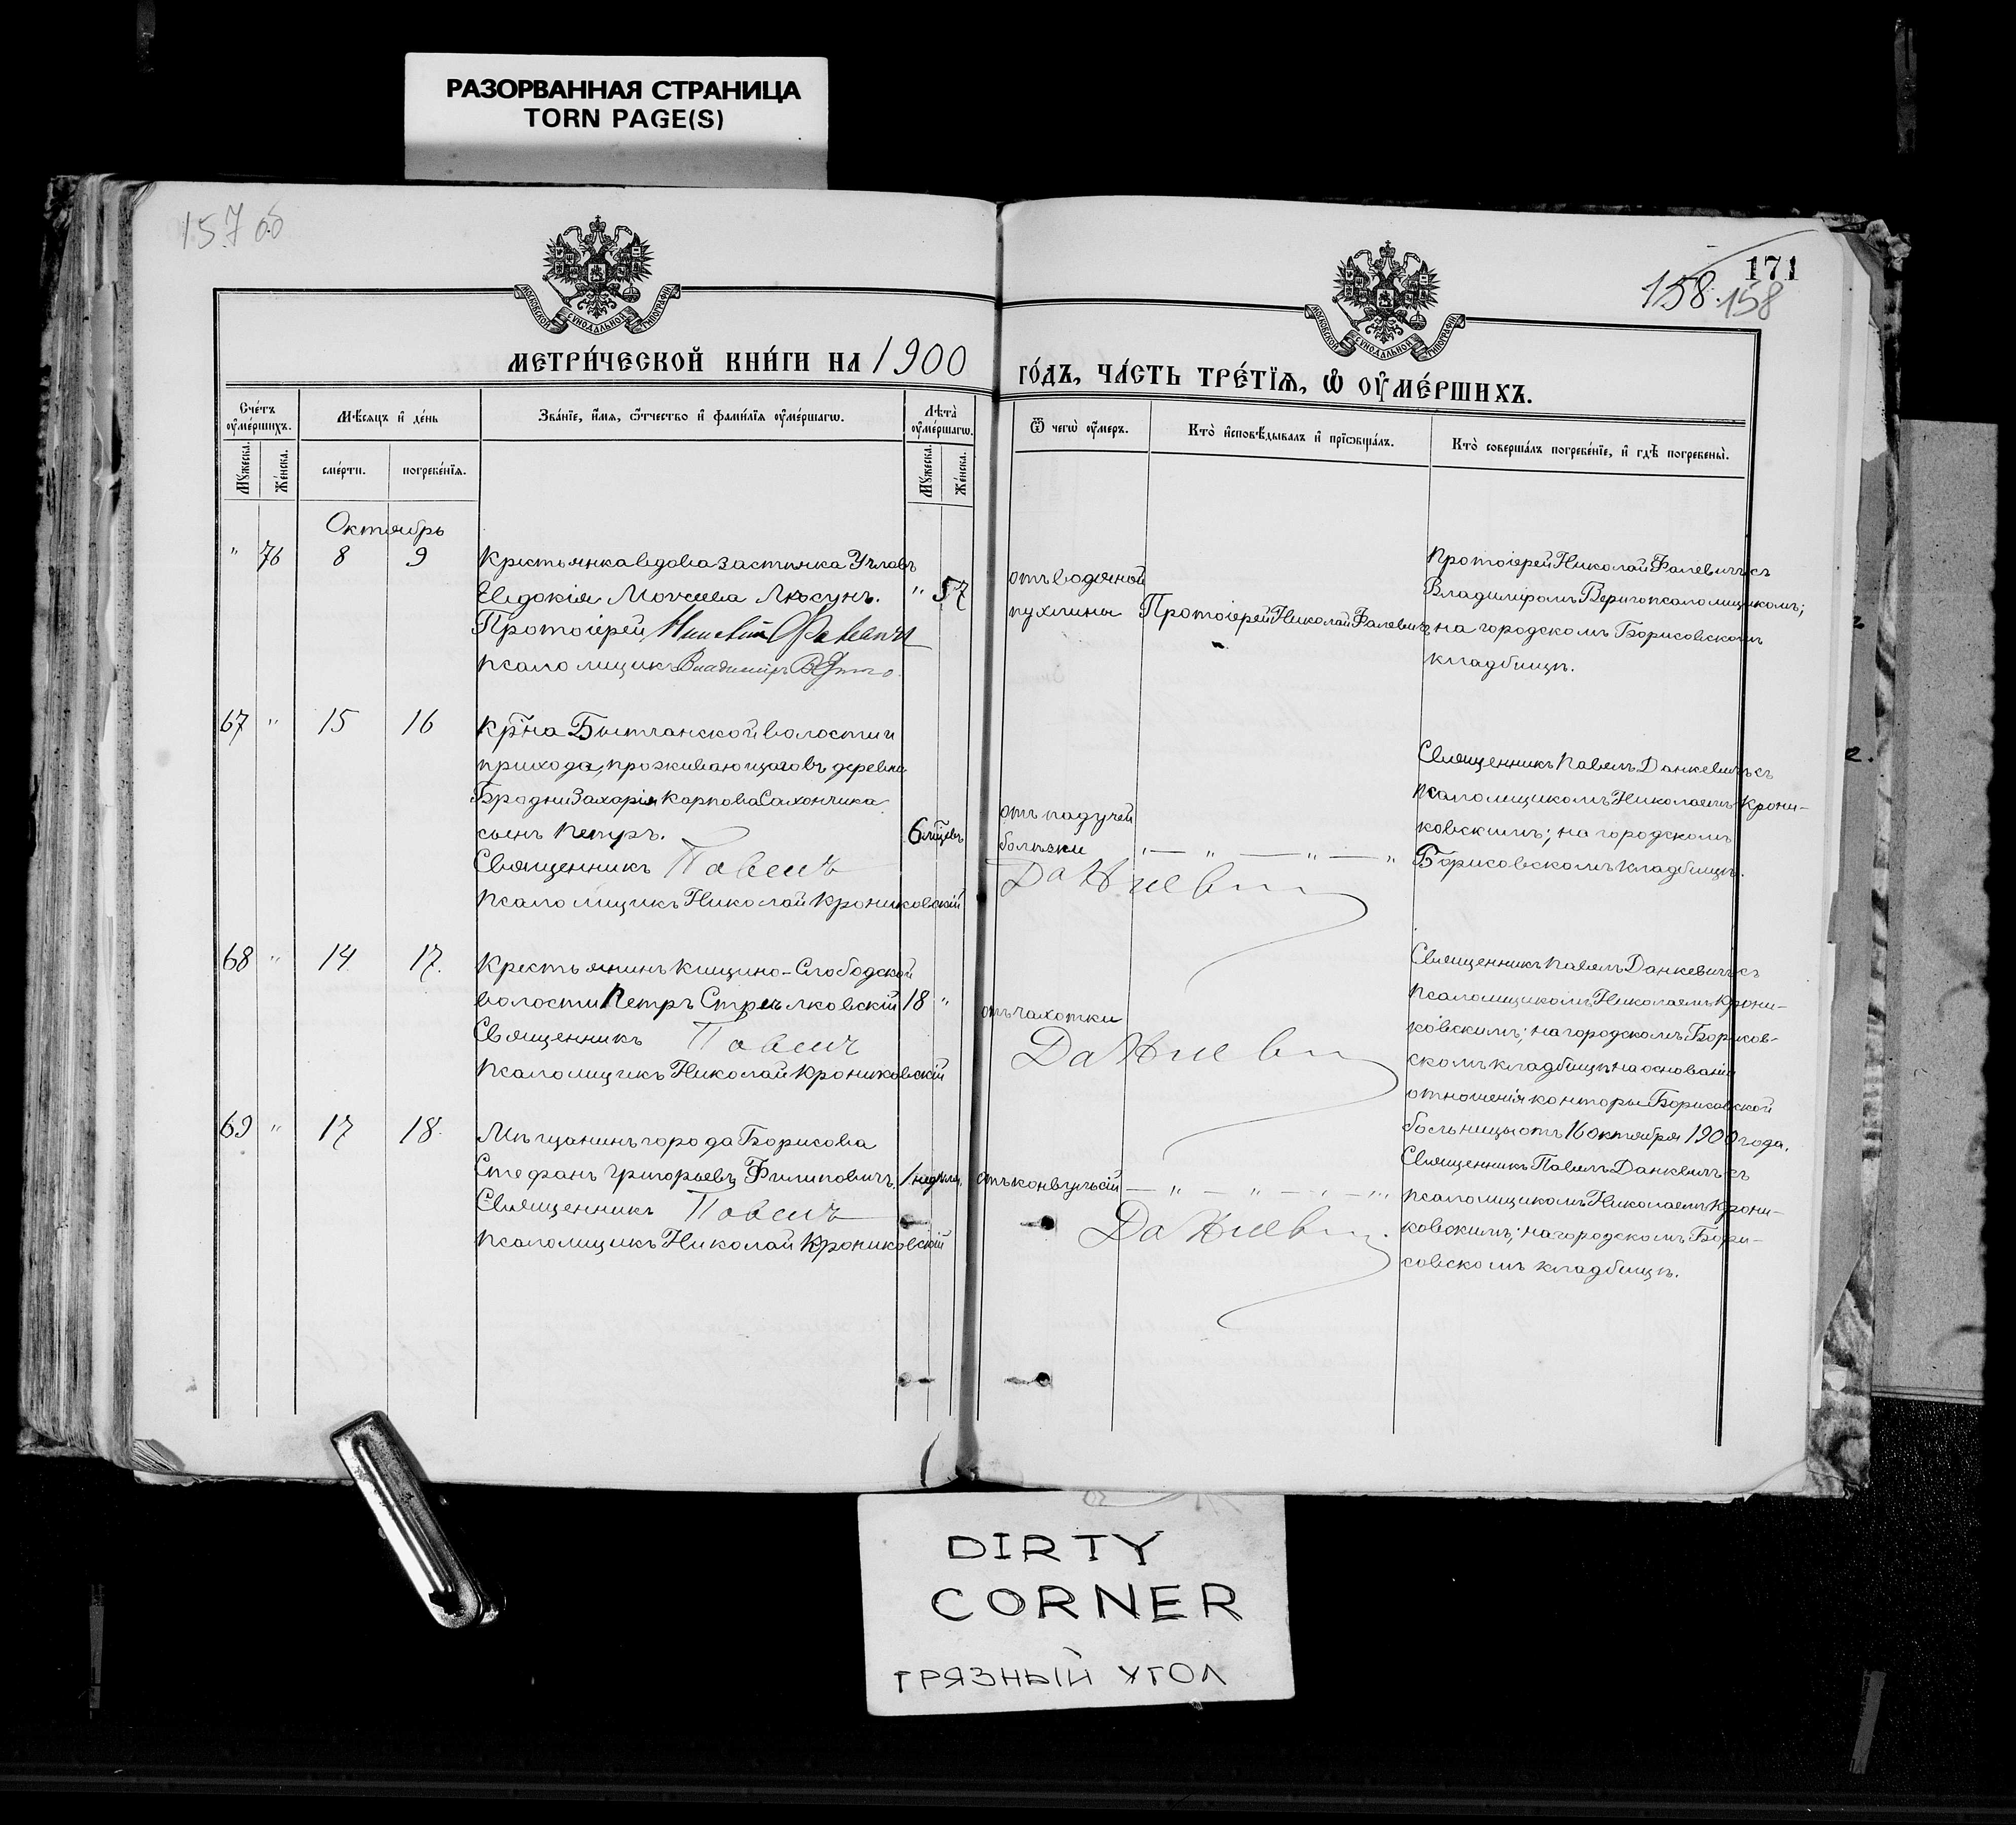 РАЗОРВАННАЯ СТРАНИЦА
TORN PAGE(S)
157 об
171
158.
158
МОСКОВСКОЙ СѴНОДАЛЬНОЙ ТИПОГРАФІИ
МОСКОВСКОЙ СѴНОДАЛЬНОЙ ТИПОГРАФІИ
МЕТРИ́ЧЕСКОЙ КНИ́ГИ НА 1900
ГО́ДЪ, ЧА́СТЬ ТРЕ́ТЇѦ, Ѽ ОУ҆МЕ́РШИХЪ.
Сче́тъ оу҆ме́ршихъ.
Мѣ́сѧцъ и҆ де́нь
Зва́нїе, и҆́мѧ, ѻ҆́тчество и҆ фами́лїѧ оу҆ме́ршагѡ.
Лѣ́та̀ оу҆ме́ршагѡ.
Ѿ чегѡ̀ оу҆́меръ.
Кто̀ и҆сповѣ́дывалъ и҆ прїѡбща́лъ.
Кто̀ соверша́лъ погребе́нїе, и҆ гдѣ̀ погребены̀.
Мꙋ́жеска.
Же́нска.
сме́рти.
погребе́нїѧ.
Мꙋ́жеска.
Же́нска.
Октябрь
" 76 8 9 Крестьянка вдова застѣнка Углавъ
Евдокія Моисеева Лясунъ. " 57
Протоіерей Николай Фалевичъ
псаломщикъ Владиміръ Вериго.
отъ водяной
пухлины
Протоіерей Николай Фалевичъ
Протоіерей Николай Фалевичъ съ
Владиміромъ Вериго псаломщикомъ;
на городскомъ Борисовскомъ
кладбищѣ.
67 " 15 16 Кр̃на Бытчанской волости и
прихода, проживающаго въ деревни
Бродни Захарія Карпова Сахончика
сынъ Петръ. 6 мц̃евъ
Священникъ Павелъ
Псаломщикъ Николай Крониковскій
отъ падучей
болѣзни " — " — " — "
Данкевичъ
Священникъ Павелъ Данкевичъ съ
псаломщикомъ Николаемъ Крони-
ковскимъ; на городскомъ
Борисовскомъ кладбищѣ.
68 " 14 17. Крестьянинъ Кищино-Слободской
волости Петръ Стрелковскій 18 "
Священникъ Павелъ
Псаломщикъ Николай Крониковскій
отъ чахотки
Данкевичъ
Священникъ Павелъ Данкевичъ съ
псаломщикомъ Николаемъ Крони-
ковскимъ; на городскомъ Борисов-
скомъ кладбищѣ на основаніи
отношенія конторы Борисовской
больницы отъ 16 октября 1900 года.
69 " 17 18. Мѣщанинъ города Борисова
Стефанъ Григорьевъ Филиповичъ. 1 недѣля.
Священникъ Павелъ
Псаломщикъ Николай Крониковскій
отъ конвульсій — " — " — " — "
Данкевичъ
Священникъ Павелъ Данкевичъ съ
псаломщикомъ Николаемъ Крони-
ковскимъ; на городскомъ Бори-
совскомъ кладбищѣ.
DIRTY
CORNER
ГРЯЗНЫЙ УГОЛ